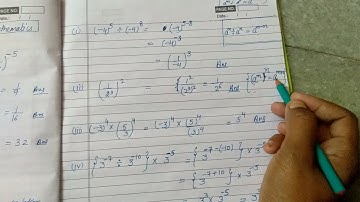 PAGE NO.
DATE
PAGE NO.
thematics
)⁻⁵
= 1/16
= 32 Ans
(i) (-4)⁵ ÷ (-4)⁸ = (-4)⁵⁻⁸
= (-4)⁻³
= (1/-4)³
aᵐ ÷ aⁿ = aᵐ⁻ⁿ
(ii) (1/2³)² = {1²/(2³)²} = 1/2⁶ Ans {(aᵐ)ⁿ = aᵐⁿ
(iii) (-3)⁴ × (5/3)⁴ = (-3)⁴ × (5)⁴/(3)⁴ = 5⁴ Ans
(iv) {3⁻⁷ ÷ 3¹⁰} × 3⁻⁵ = {3⁻⁷⁻⁽⁻¹⁰⁾} × 3⁻⁵
= {3⁻⁷⁺¹⁰} × 3⁻⁵
= 3³ × 3⁻⁵ = 3